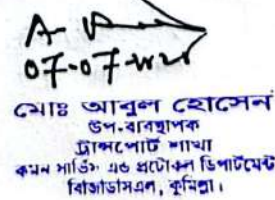 07-07-২০২
মোঃ আবুল হোসেন
উপ-ব্যবস্থাপক
ট্রান্সপোর্ট শাখা
কমন সার্ভিস এন্ড প্রটোকল ডিপার্টমেন্ট
বিজিডিসিএল, কুমিল্লা।